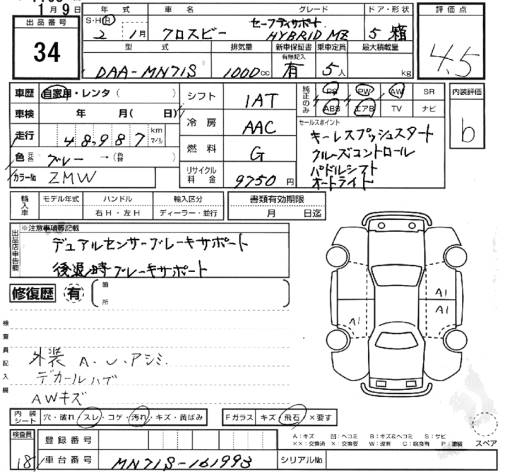 1月9日
出品番号 34
年式 車名 グレード ドア・形状
S・H・R 2年 1月 クロスビー セーフティサポート HYBRID MZ 5 箱
型式 排気量 新車保証書 乗車定員 最大積載量
有無記入
DAA-MN71S 1000cc 有 5人 kg
評価点
4.5
車歴 自家用・レンタ( )
車検 年 月( 日)
走行 48,987 km マイル
色 元色 グレー→( 色)
カラーNo ZMW
シフト 1AT
冷房 AAC
燃料 G
リサイクル料金 9750円
純正のみ PS PW AW SR
ABS エアB TV ナビ
内装評価
b
セールスポイント
キーレスプッシュスタート
クルーズコントロール
パドルシフト
オートライト
輸入車 モデル年式 ハンドル 輸入区分 書類有効期限
右H・左H ディーラー・並行 月 日迄
出品店申告欄 ※注意事項等記載
デュアルセンサーブレーキサポート
後退時ブレーキサポート
修復歴 有 箇所
検査員記入欄
外装 A.U.アシミ
デカールハゲ
AWキズ
A1
A1
内装シート 穴・破れ スレ・コゲ・汚れ・キズ・黄ばみ
Fガラス キズ 飛石 ×要す
検査員 18
登録番号
車台番号 MN71S-161993
シリアルNo
スペア